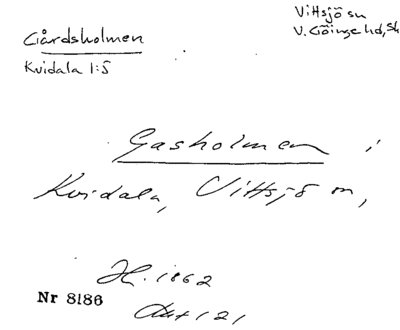 Gårdsholmen
Kvidala 1:5
Vittsjö sn
V. Göinge hd, Sk
Gasholmen i
Kvidala, Vittsjö sn,
H. 1862
Nr 8186
121